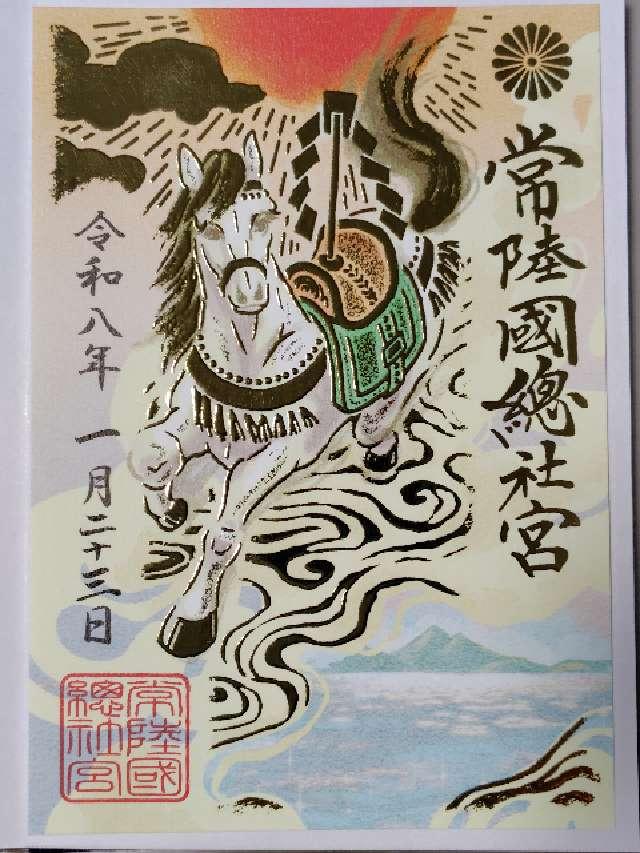 常陸國總社宮
令和八年 一月二十三日
常陸國
總社宮